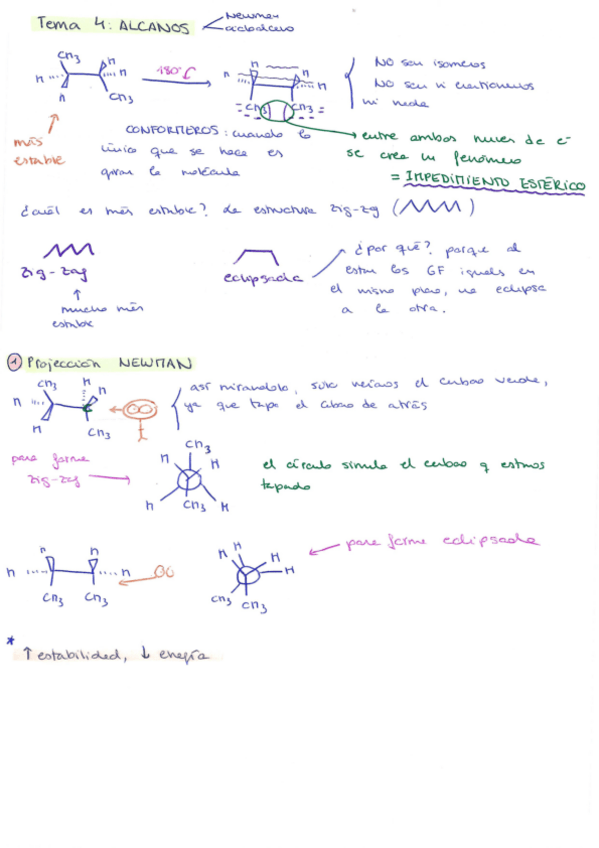 Tema 4: ALCANOS
Newman
CH3 H H H H CH3
180º
H H H H CH3 CH3
NO son isómeros
NO son ni
ni nada
más estable
CONFÓRMEROS: cuando lo
único que se hace es
girar la molécula
entre ambas nubes de e-
se crea un fenómeno
= IMPEDIMIENTO ESTÉRICO
¿cuál es más estable? la estructura zig-zag
zig-zag
mucho más
estable
eclipsada
¿por qué? porque al
estar los GF iguals en
el mismo plano, una eclipsa
a la otra.
1 Projección NEWMAN
CH3 H H H H CH3
así mirandolo, solo veríamos el carbono verde,
ya que tapa el de atrás
para forma
zig-zag
CH3 H H H CH3 H
el círculo simula el carbono q estamos
tapando
H H H H CH3 CH3
H H H H CH3 CH3
para forma eclipsada
* ↑ estabilidad, ↓ energía